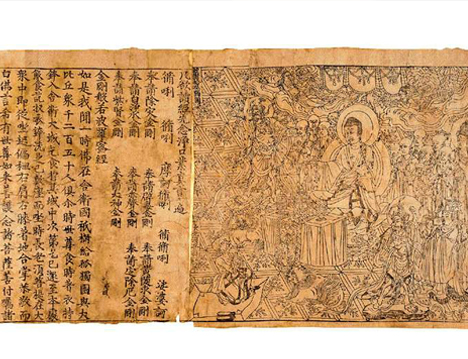 凡欲讀經先念淨口業真言一遍
脩唎 脩唎 摩訶脩唎 脩脩唎 娑婆訶
奉請除災金剛 奉請辟毒金剛
奉請黃隨求金剛 奉請白淨水金剛
奉請赤聲金剛 奉請定除厄金剛
奉請紫賢金剛 奉請大神金剛
金剛般若波羅蜜經
如是我聞一時佛在舍衛國祇樹給孤獨園與大
比丘衆千二百五十人俱尒時世尊食時著衣持
鉢入舍衛大城乞食於其城中次第乞已還至本處
飯食訖收衣鉢洗足已敷座而坐時長老須菩提在大
衆中即從座起偏袒右肩右膝著地合掌恭敬而
白佛言希有世尊如來善護念諸菩薩善付囑諸